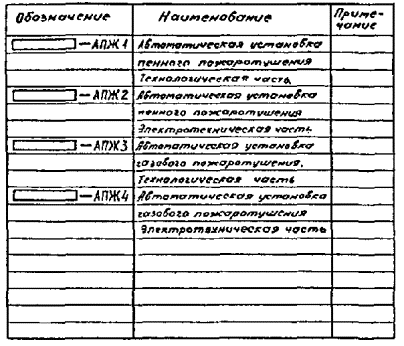 Обозначение Наименование Приме-
чание
—АПЖ1 Автоматическая установка
пенного пожаротушения
Технологическая часть
—АПЖ2 Автоматическая установка
пенного пожаротушения
Электротехническая часть
—АПЖ3 Автоматическая установка
газового пожаротушения.
Технологическая часть
—АПЖ4 Автоматическая установка
газового пожаротушения
Электротехническая часть